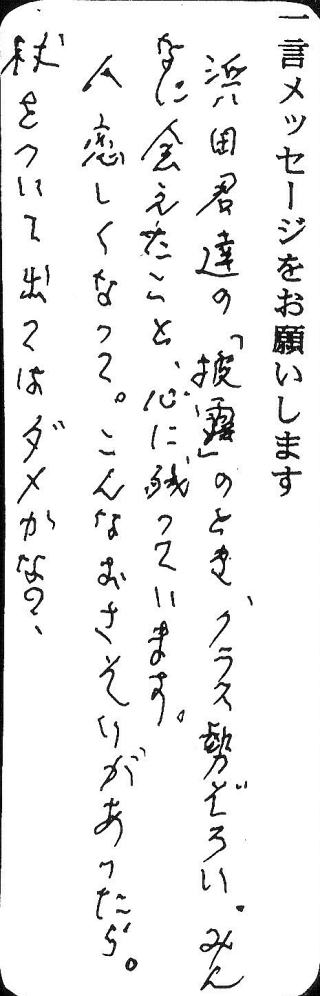 一言メッセージをお願いします
浜田君達の「披露」のとき、クラス勢ぞろい。みん
なに会えたこと、心に残っています。
人恋しくなって。こんなおさそいがあったら。
杖をついて出てはダメかなの、